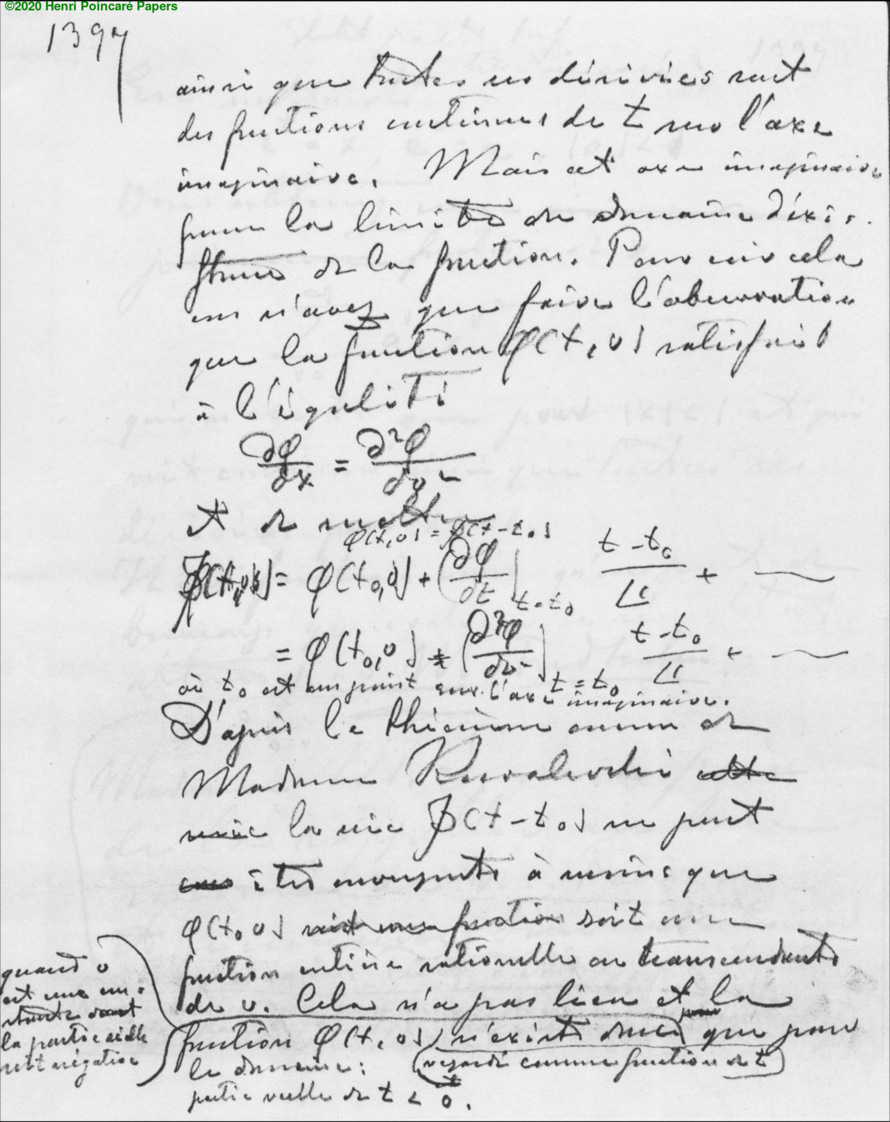 ©2020 Henri Poincaré Papers
1394
ainsi que toutes ses dérivées sont
des fonctions continues de t sur l'axe
imaginaire. Mais cet axe imaginaire
forme la limite du domaine d'exi-
stence de la fonction. Pour voir cela
vous n'avez que faire l'observation
que la fonction φ(t, υ) satisfait
à l'égalité
∂φ/∂x = ∂²φ/∂υ²
et de mettre
φ(t,υ) = P(t-t₀)
φ(t,υ) = φ(t₀,υ) + (∂φ/∂t)t=t₀ (t-t₀)/1 +
= φ(t₀,υ) + (∂²φ/∂υ²)t=t₀ (t-t₀)/1 +
où t₀ est un point sur l'axe imaginaire.
D'après le théorème connu de
Madame Kowalevski
la série P(t-t₀) ne peut
être convergente à moins que
φ(t₀, υ) soit une
fonction entière rationelle ou transcendante
de υ. Cela n'a pas lieu et la
fonction φ(t, υ) n'existe donc que pour
regardé comme fonction de t
le domaine:
partie réelle de t < 0.
quand υ
est une con-
stante dont
la partie réelle
est négative